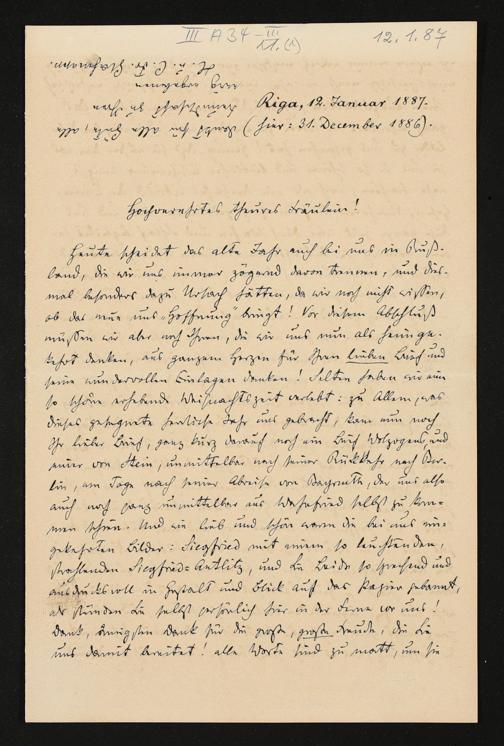 III A 34 - III
11.(1)
12.1.87
Dank für alle Güte, alle
Freundschaft zu Ihren
H. u. C. Fr. Glasenapp.
Riga, 12. Januar 1887.
(hier: 31. December 1886).
Hochverehrtes theures Fräulein!
Heute scheidet das alte Jahr auch bei uns in Ruß-
land, die wir uns immer zögernd davon trennen, und dies-
mal besonders dazu Ursach hätten, da wir noch nicht wissen,
ob das neue uns "Hoffnung" bringt! Vor diesem Abschluß
müssen wir aber noch Ihnen, die wir uns nun als heimge-
kehrt denken, aus ganzem Herzen für Ihren lieben Brief und
seine wundervollen Einlagen danken! Selten haben wir eine
so schöne erhebende Weihnachtszeit verlebt: zu Allem, was
dieses gesegnete herrliche Jahr uns gebracht, kam nun noch
Ihr lieber Brief, ganz kurz darauf noch ein Brief Wolzogens und
einer von Stein, unmittelbar nach seiner Rückkehr nach Ber-
lin, am Tage nach seiner Abreise von Bayreuth, der uns also
auch noch ganz unmittelbar aus Wahnfried selbst zu kom-
men schien. Und wie lieb und schön waren die bei uns ein-
gekehrten Bilder: Siegfried mit einem so leuchtenden,
strahlenden Siegfried-Antlitz, und die Beiden so sprechend und
ausdrucksvoll in Gestalt und Blick auf das Papier gebannt,
als stünden Sie selbst persönlich hier in der Ferne vor uns!
Dank, innigsten Dank für die große, große Freude, die Sie
uns damit bereitet! Alle Worte sind zu matt, um sie